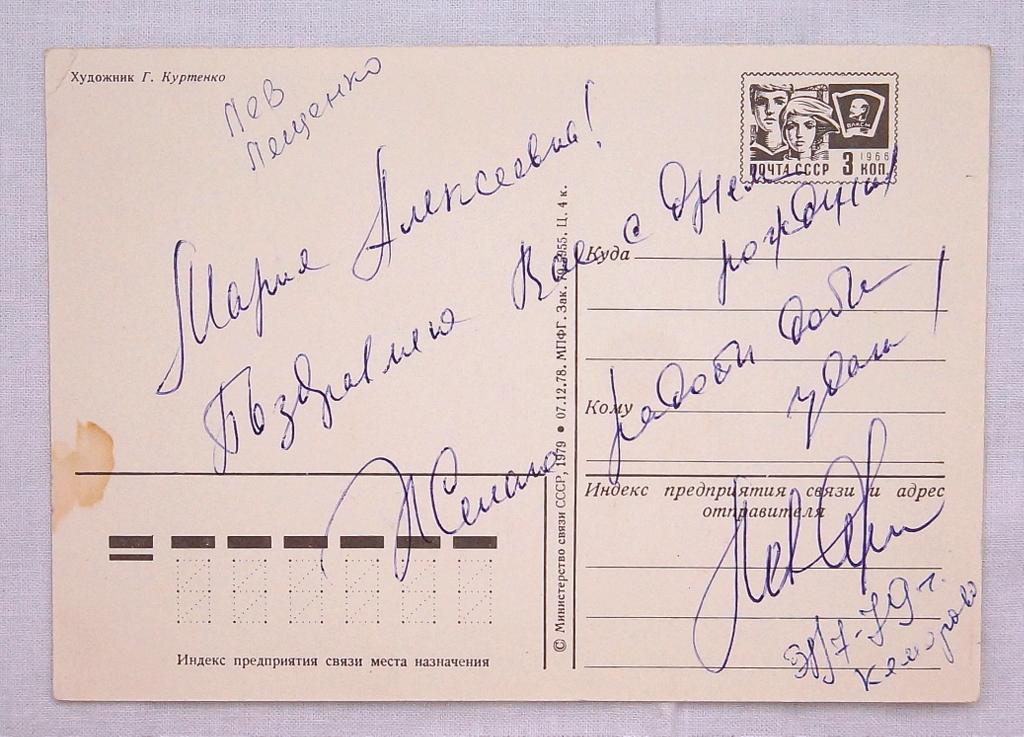 Художник Г. Куртенко
Лев
Лещенко
ВЛКСМ
1966
ПОЧТА СССР 3 КОП.
Мария Алексеевна!
Поздравляю Вас с Днем
рождения!
Желаю радости
удачи!
Куда
Кому
Индекс предприятия связи и адрес
отправителя
© Министерство связи СССР, 1979 • 07.12.78. МПФГ. Зак. Ц. 4 к.
Индекс предприятия связи места назначения
Лев
30/7-79 г.
Кемерово